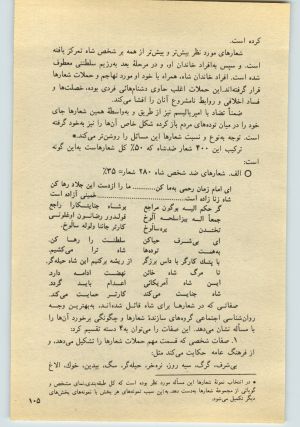 کرده است.
شعارهای مورد نظر بیش‌تر و پیش‌تر از همه بر شخص شاه تمرکز یافته
و سپس به‌افراد خاندان او، و در مرحلهٔ بعد به‌رژیم سلطنتی معطوف
شده است. افراد خاندان شاه، همراه با خود او مورد تهاجم و حملات شعارها
قرار گرفته‌اند. این حملات اغلب حاوی دشنام‌هائی فردی بوده، خصلت‌ها و
فساد اخلاقی و روابط نامشروع آنان را افشا می‌کند.
ضمناً تضاد با امپریالیسم نیز از طریق و به‌واسطهٔ همین شعارها جای
خود را در میان توده‌های مردم باز کرده شکل خاص آن‌ها را نیز به‌خود گرفته
است. توجه به‌نوع و نسبت شعارها این مسائل را روشن‌تر می‌کند.*
ترکیب این ۴۰۰ شعار ضدشاه که ۵۰٪ کل شعارهاست به‌این گونه
است:
○ الف. شعارهای ضد شخص شاه ۲۸۰ شعار= ۳۵٪
ای امام زمان رحمی به‌ما کن... ما را ازدست این جلاد رها کن
شاه زنا زاده است... خمینی آزاده است
گر حکم الیه یرگون مراجع
جمعا الیه
تخشدن
ای بی‌شرف حیاکن سلطنت را رها کن.
به‌همت توده‌ها شاه ترا می‌کشیم
با پتک کارگر با داس برزگر از ریشه برکنیم این شاه حیله‌گر.
تا مرگ شاه خائن نهضت ادامه دارد
این شاه آمریکائی اعدام باید گردد
شاه جنایت می‌کند کارتر حمایت می‌کند.
صفاتی که در شعارها برای شاه قائل شده‌اند، به‌بهترین وجه
روان‌شناسی اجتماعی گروه‌های سازندهٔ شعارها و چگونگی برخورد آن‌ها را
با مسأله نشان می‌دهد. این صفات را می‌توان به۴ دسته تقسیم کرد:
۱. صفات شخصی که قسمت مهم حملات شعارها را تشکیل می‌دهد، و
از فرهنگ عامه حکایت می‌کند مثل:
بی‌شرف، گرگ، سیه روز، نره‌خر، حیله‌گر، سگ، بیدین، خوک، الاغ
* در انتخاب نمونهٔ شعارها این مسأله مورد نظر بوده است که کل طبقه‌بندی‌نمای مشخص و
گویائی از مجموعهٔ شعارها به‌دست دهد. به‌این سبب نمونه‌های هر بخش با نمونه‌های بخش‌های
دیگر تکمیل می‌شود.
۱۰۵